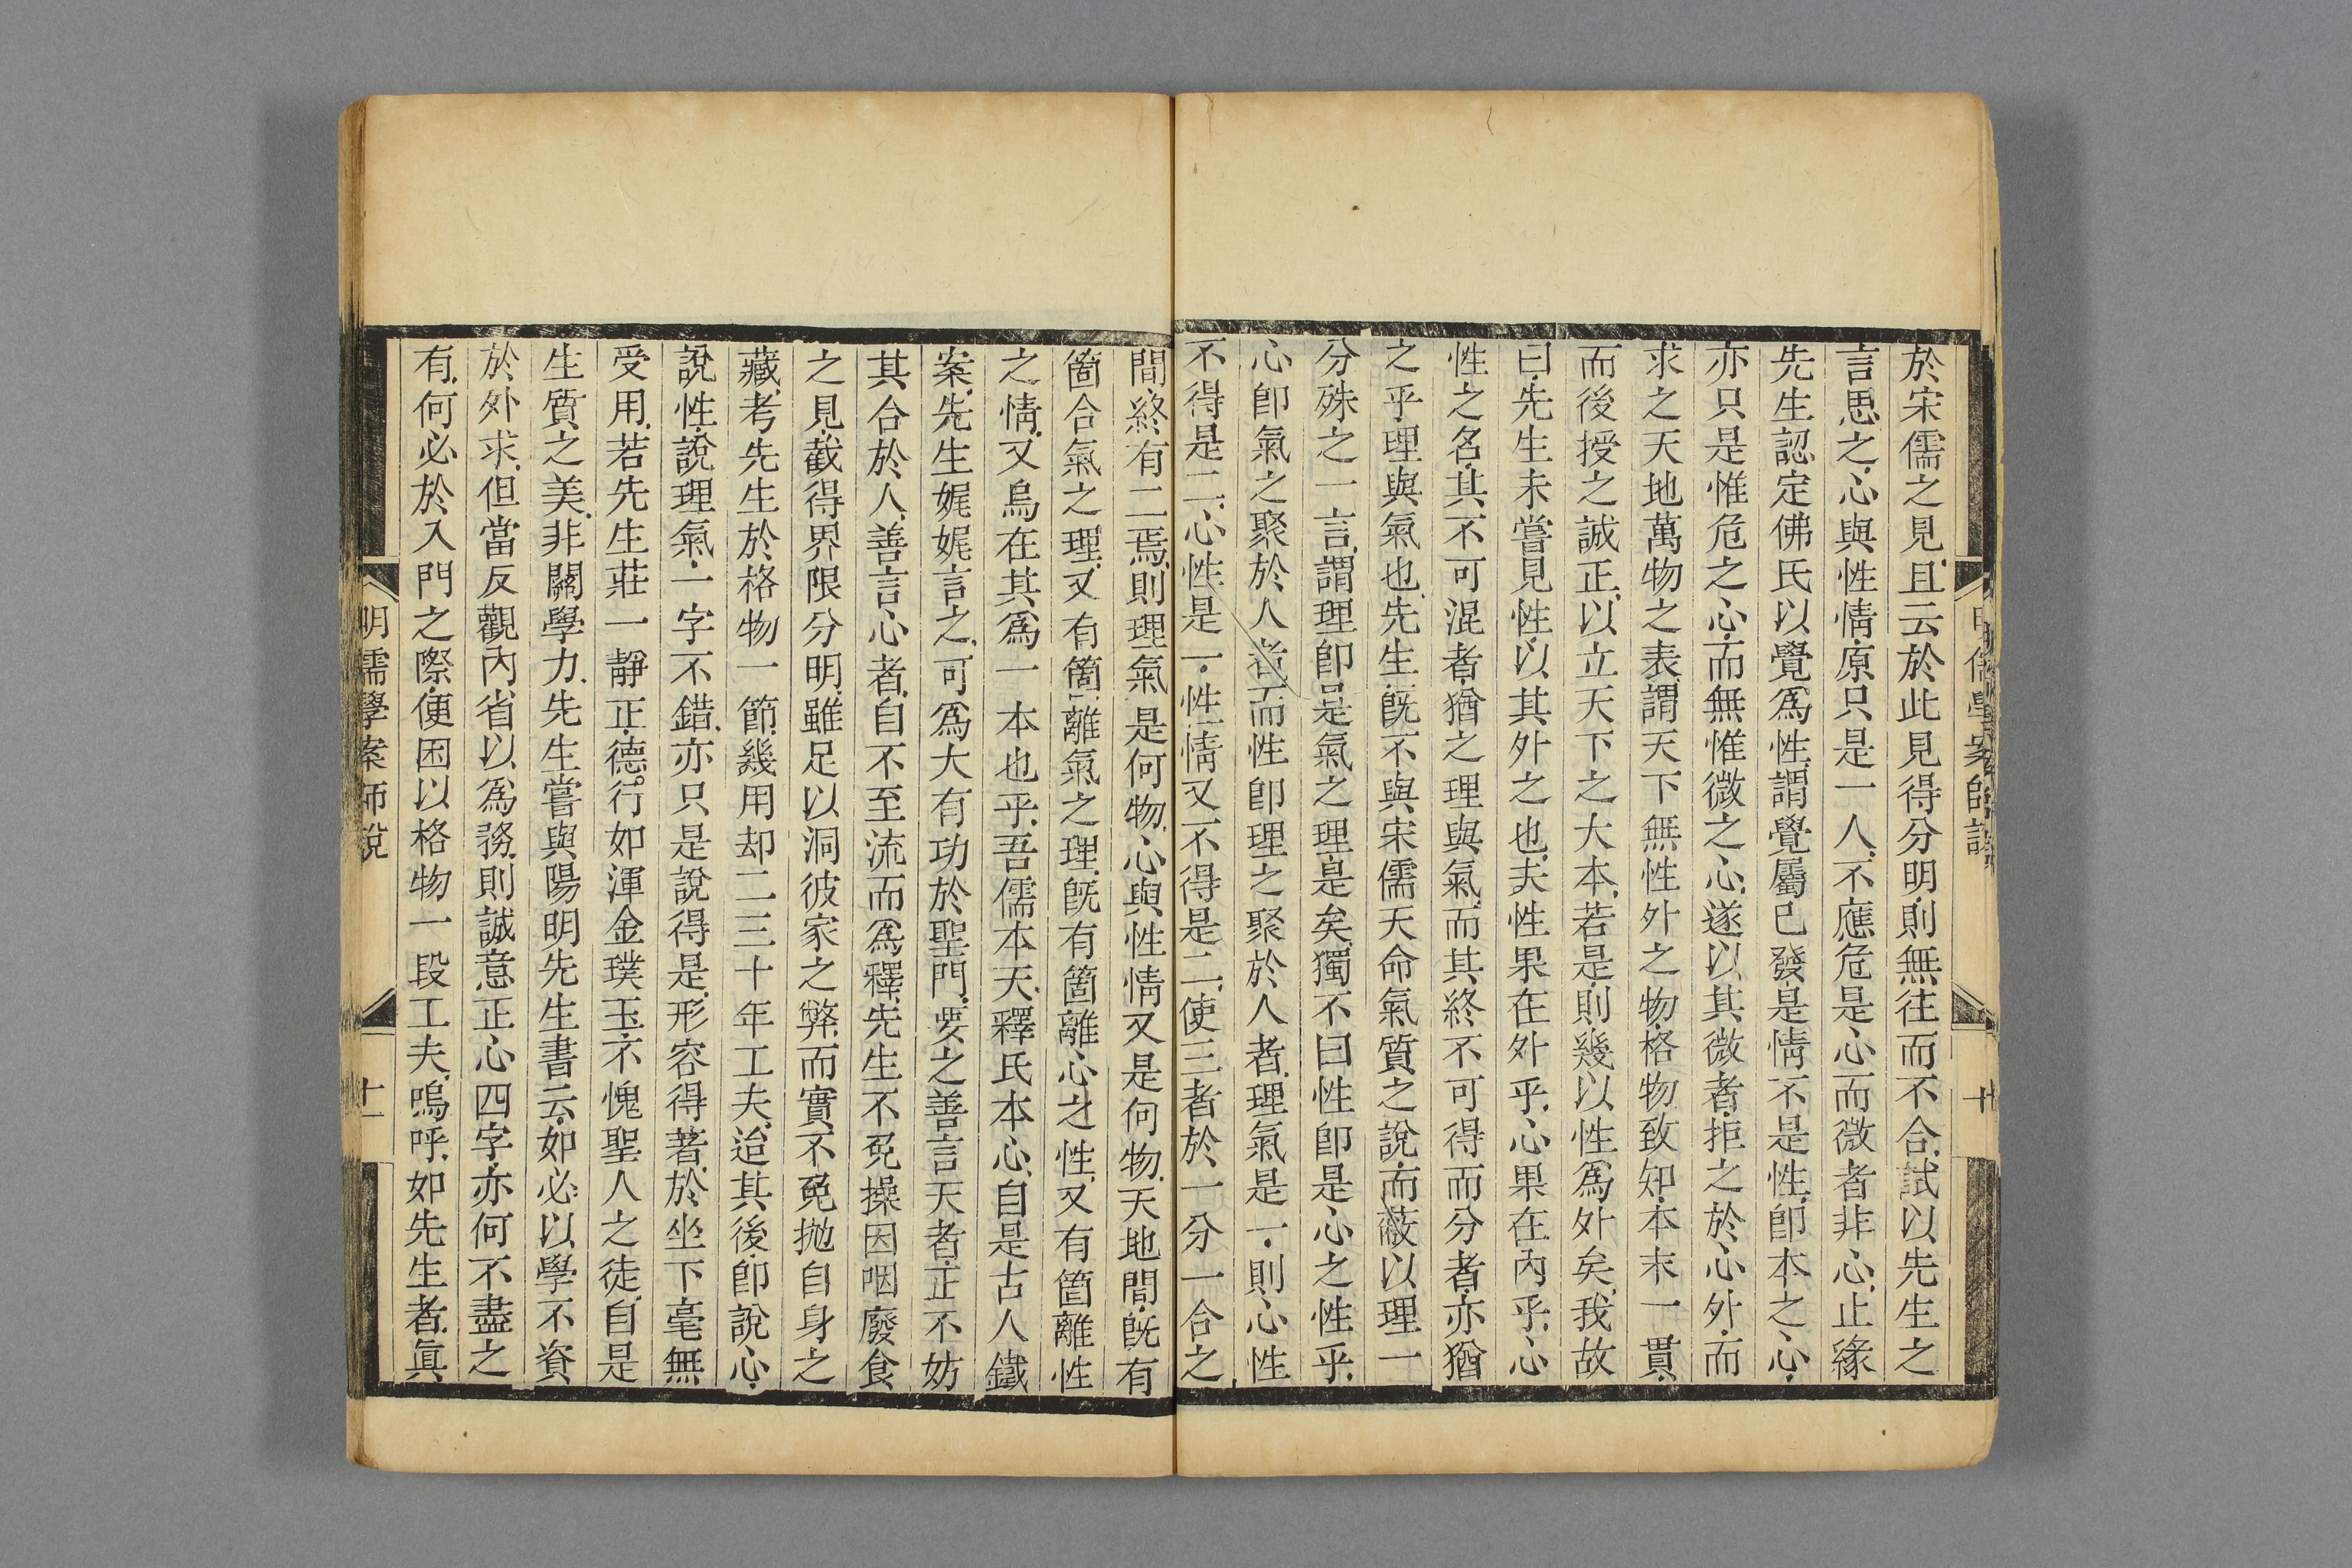 於宋儒之見且云於此見得分明則無往而不合試以先生之
言思之心與性情原只是一人不應危是心而微者非心止緣
先生認定佛氏以覺為性謂覺屬已發是情不是性即本之心
亦只是惟危之心而無惟微之心遂以其微者拒之於心外而
求之天地萬物之表謂天下無性外之物格物致知本末一貫
而後授之誠正以立天下之大本若是則幾以性為外矣我故
曰先生未嘗見性以其外之也夫性果在外乎心果在內乎心
性之名其不可混者猶之理與氣而其終不可得而分者亦猶
之乎理與氣也先生既不與宋儒天命氣質之說而蔽以理一
分殊之一言謂理即是氣之理是矣獨不曰性即是心之性乎
心即氣之聚於人者而性即理之聚於人者理氣是一則心性
不得是二心性是一性情又不得是二使三者於一分一合之
間終有二焉則理氣是何物心與性情又是何物天地間既有
箇合氣之理又有箇離氣之理既有箇離心之性又有箇離性
之情又烏在其為一本也乎吾儒本天釋氏本心自是古人鐵
案先生娓娓言之可為大有功於聖門要之善言天者正不妨
其合於人善言心者自不至流而為釋先生不免操因咽廢食
之見截得界限分明雖足以洞彼家之弊而實不免拋自身之
藏考先生於格物一節幾用却二三十年工夫迨其後即說心
說性說理氣一字不錯亦只是說得是形容得著於坐下毫無
受用若先生莊一靜正德行如渾金璞玉不愧聖人之徒自是
生質之美非關學力先生嘗與陽明先生書云如必以學不資
於外求但當反觀內省以為務則誠意正心四字亦何不盡之
有何必於入門之際便困以格物一段工夫嗚呼如先生者真
明儒學案師說
十一